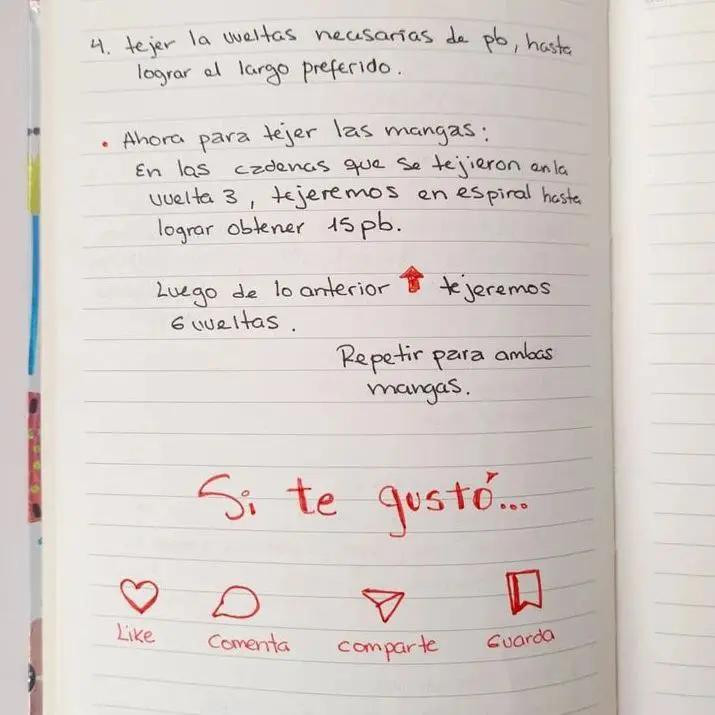 4. tejer la vueltas necesarias de pb, hasta
lograr el largo preferido.
• Ahora para tejer las mangas:
En las cadenas que se tejieron en la
vuelta 3, tejeremos en espiral hasta
lograr obtener 15pb.
Luego de lo anterior ↑ tejeremos
6 vueltas.
Repetir para ambas
mangas.
Si te gustó...
Like Comenta comparte Guarda